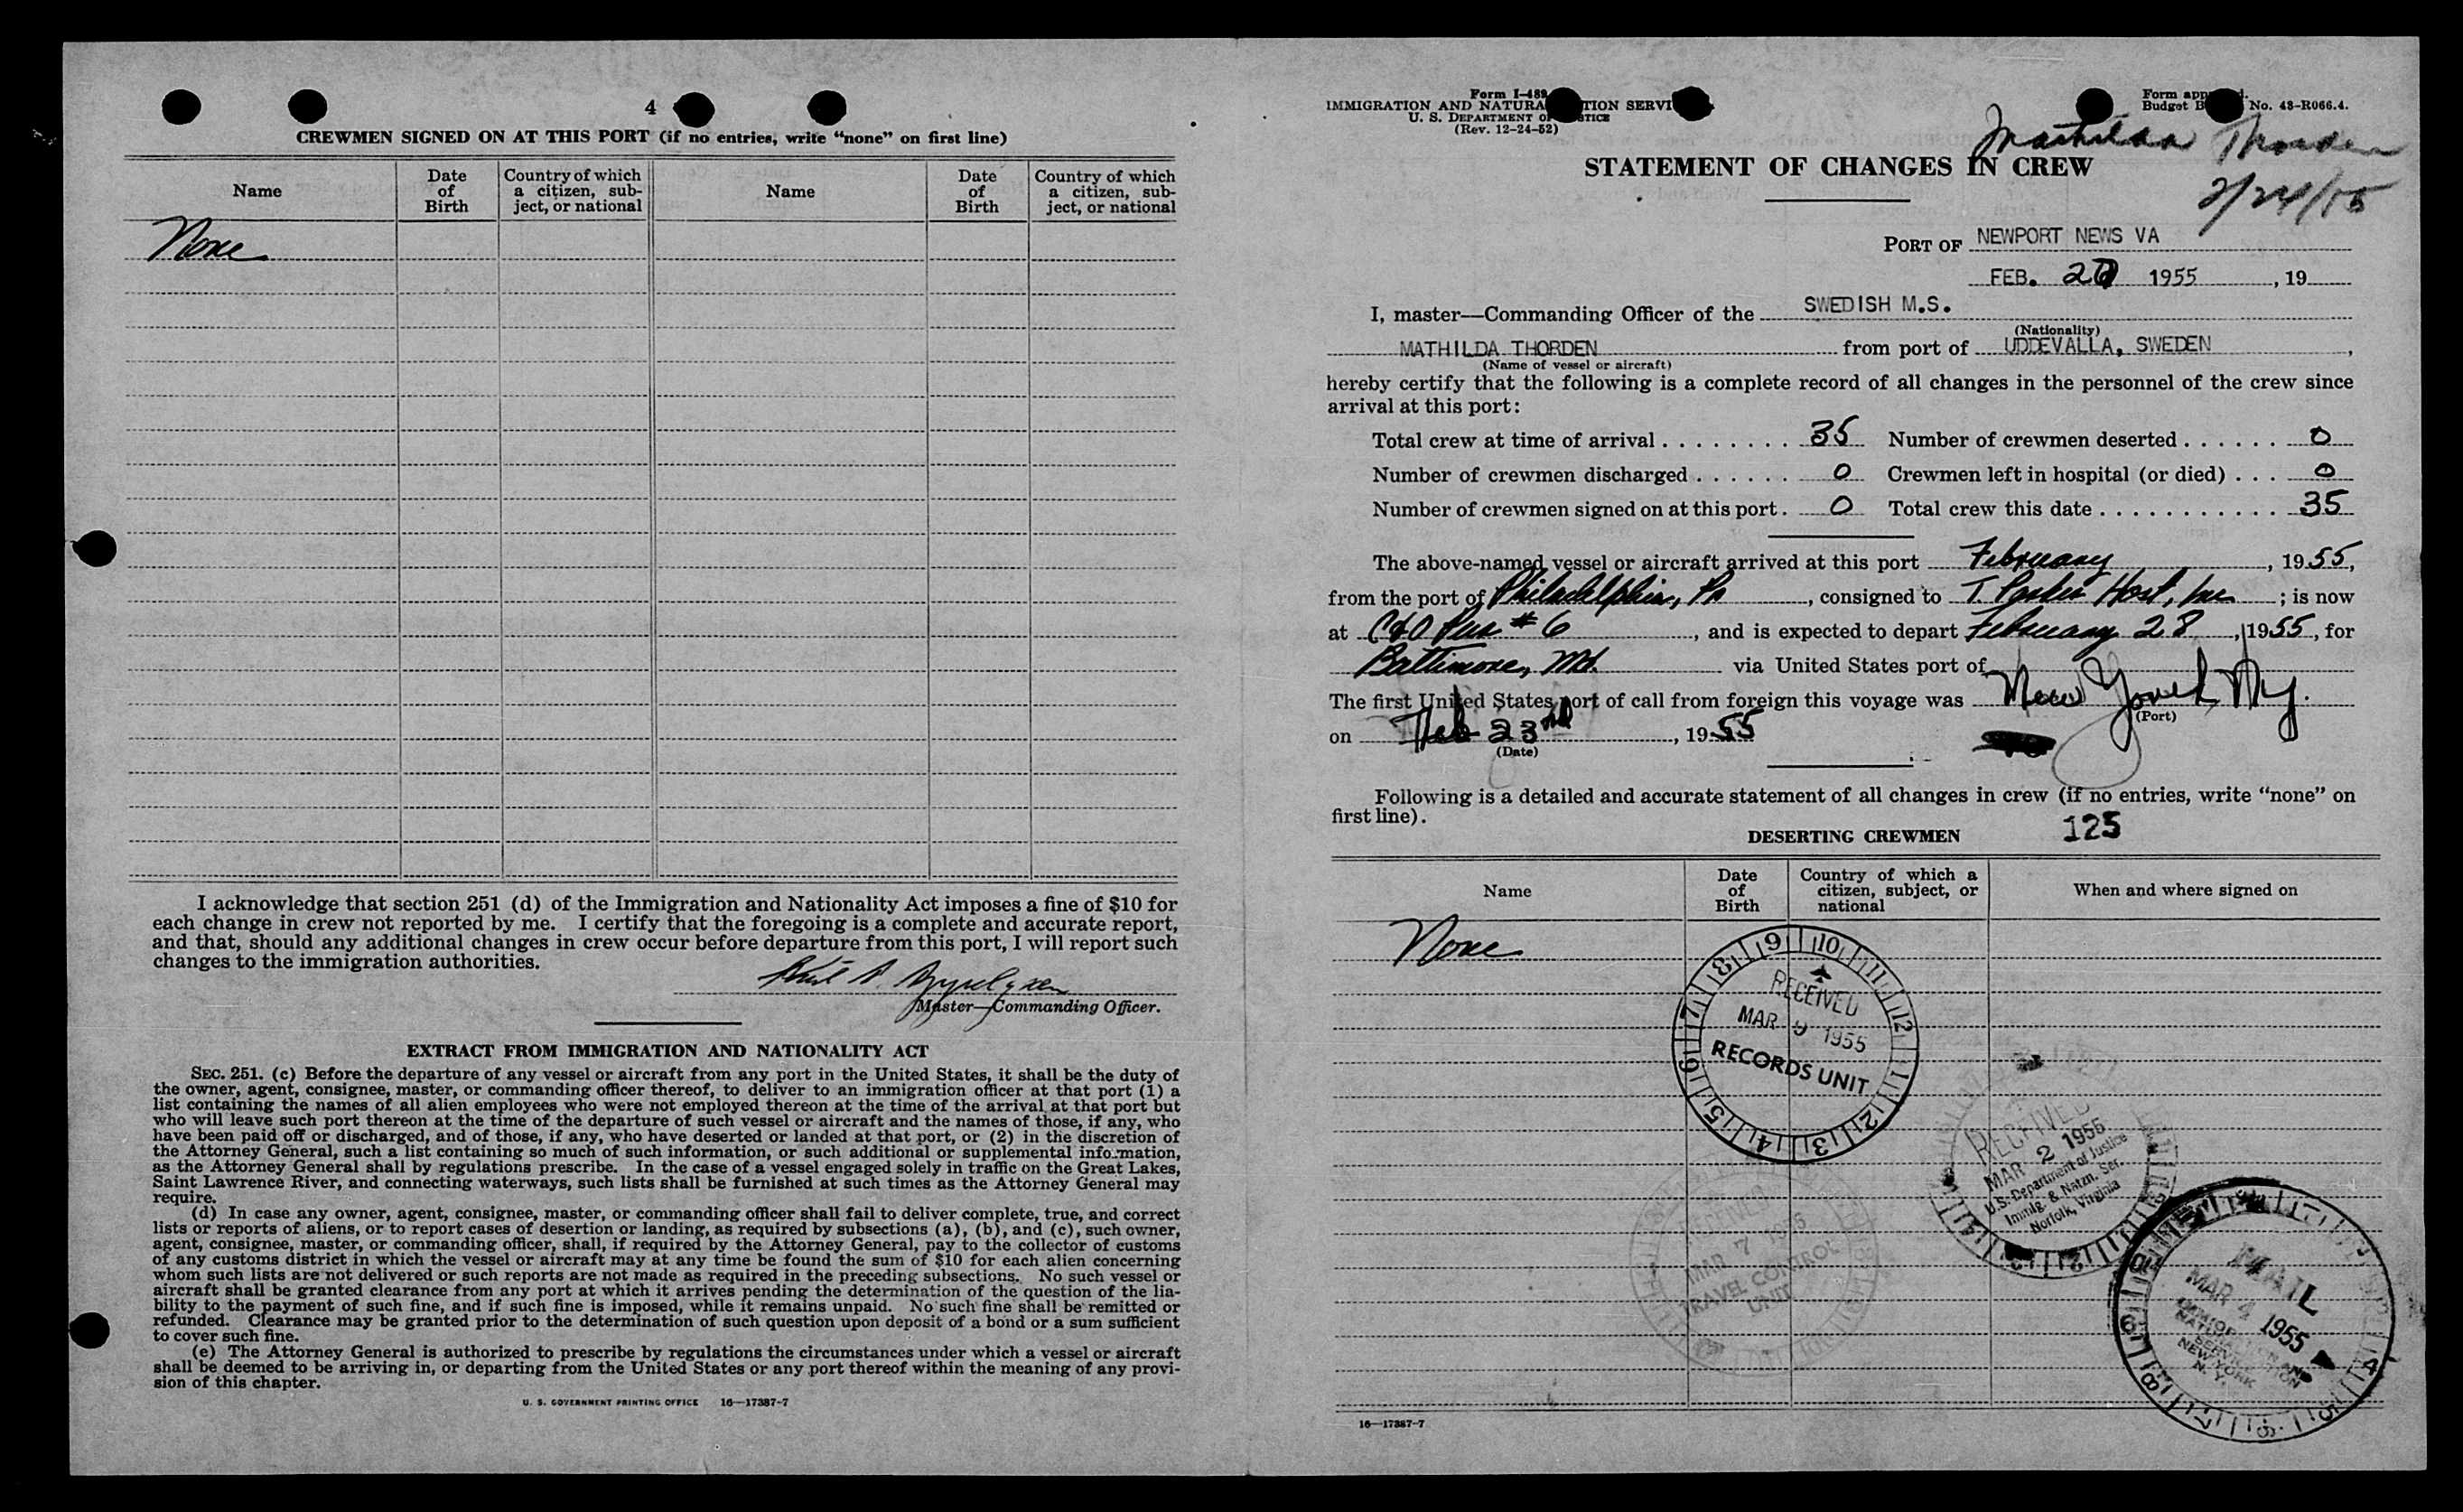 4
CREWMEN SIGNED ON AT THIS PORT (if no entries, write “none” on first line)
Name
Date of Birth
Country of which a citizen, sub-ject, or national
Name
Date of Birth
Country of which a citizen, sub-ject, or national
None
I acknowledge that section 251 (d) of the Immigration and Nationality Act imposes a fine of $10 for
each change in crew not reported by me. I certify that the foregoing is a complete and accurate report,
and that, should any additional changes in crew occur before departure from this port, I will report such
changes to the immigration authorities.
Master—Commanding Officer.
EXTRACT FROM IMMIGRATION AND NATIONALITY ACT
SEC. 251. (c) Before the departure of any vessel or aircraft from any port in the United States, it shall be the duty of
the owner, agent, consignee, master, or commanding officer thereof, to deliver to an immigration officer at that port (1) a
list containing the names of all alien employees who were not employed thereon at the time of the arrival at that port but
who will leave such port thereon at the time of the departure of such vessel or aircraft and the names of those, if any, who
have been paid off or discharged, and of those, if any, who have deserted or landed at that port, or (2) in the discretion of
the Attorney General, such a list containing so much of such information, or such additional or supplemental information,
as the Attorney General shall by regulations prescribe. In the case of a vessel engaged solely in traffic on the Great Lakes,
Saint Lawrence River, and connecting waterways, such lists shall be furnished at such times as the Attorney General may
require.
(d) In case any owner, agent, consignee, master, or commanding officer shall fail to deliver complete, true, and correct
lists or reports of aliens, or to report cases of desertion or landing, as required by subsections (a), (b), and (c), such owner,
agent, consignee, master, or commanding officer, shall, if required by the Attorney General, pay to the collector of customs
of any customs district in which the vessel or aircraft may at any time be found the sum of $10 for each alien concerning
whom such lists are not delivered or such reports are not made as required in the preceding subsections. No such vessel or
aircraft shall be granted clearance from any port at which it arrives pending the determination of the question of the lia-
bility to the payment of such fine, and if such fine is imposed, while it remains unpaid. No such fine shall be remitted or
refunded. Clearance may be granted prior to the determination of such question upon deposit of a bond or a sum sufficient
to cover such fine.
(e) The Attorney General is authorized to prescribe by regulations the circumstances under which a vessel or aircraft
shall be deemed to be arriving in, or departing from the United States or any port thereof within the meaning of any provi-
sion of this chapter.
U. S. GOVERNMENT PRINTING OFFICE 16—17387-7
Form I-489
IMMIGRATION AND NATURA TION SERVI
U. S. DEPARTMENT OF STICE
(Rev. 12-24-52)
Form app
Budget B No. 43-R066.4.
Mathilda Thorden
2/24/55
STATEMENT OF CHANGES IN CREW
PORT OF NEWPORT NEWS VA
FEB. 1955, 19
I, master—Commanding Officer of the SWEDISH M.S.
(Nationality)
MATHILDA THORDEN from port of UDDEVALLA, SWEDEN,
(Name of vessel or aircraft)
hereby certify that the following is a complete record of all changes in the personnel of the crew since
arrival at this port:
Total crew at time of arrival 35 Number of crewmen deserted 0
Number of crewmen discharged 0 Crewmen left in hospital (or died) 0
Number of crewmen signed on at this port 0 Total crew this date 35
The above-named vessel or aircraft arrived at this port February, 1955,
from the port of Philadelphia, Pa, consigned to T. Parker Host, Inc; is now
at C&O Pier #6, and is expected to depart February 28, 1955, for
Baltimore, Md. via United States port of
The first United States port of call from foreign this voyage was New York Ny.
(Port)
on Feb 23rd, 1955
(Date)
Following is a detailed and accurate statement of all changes in crew (if no entries, write “none” on
first line).
DESERTING CREWMEN
125
Name
Date of Birth
Country of which a citizen, subject, or national
When and where signed on
None
RECEIVED
MAR 9 1955
RECORDS UNIT
RECEIVED
MAR 2 1955
U.S. Department of Justice
Immig. & Natzn. Ser.
Norfolk, Virginia
MAR 7 1955
TRAVEL CONTROL
UNIT
MAIL
MAR 4 1955
NEW YORK
N. Y.
16—17387-7